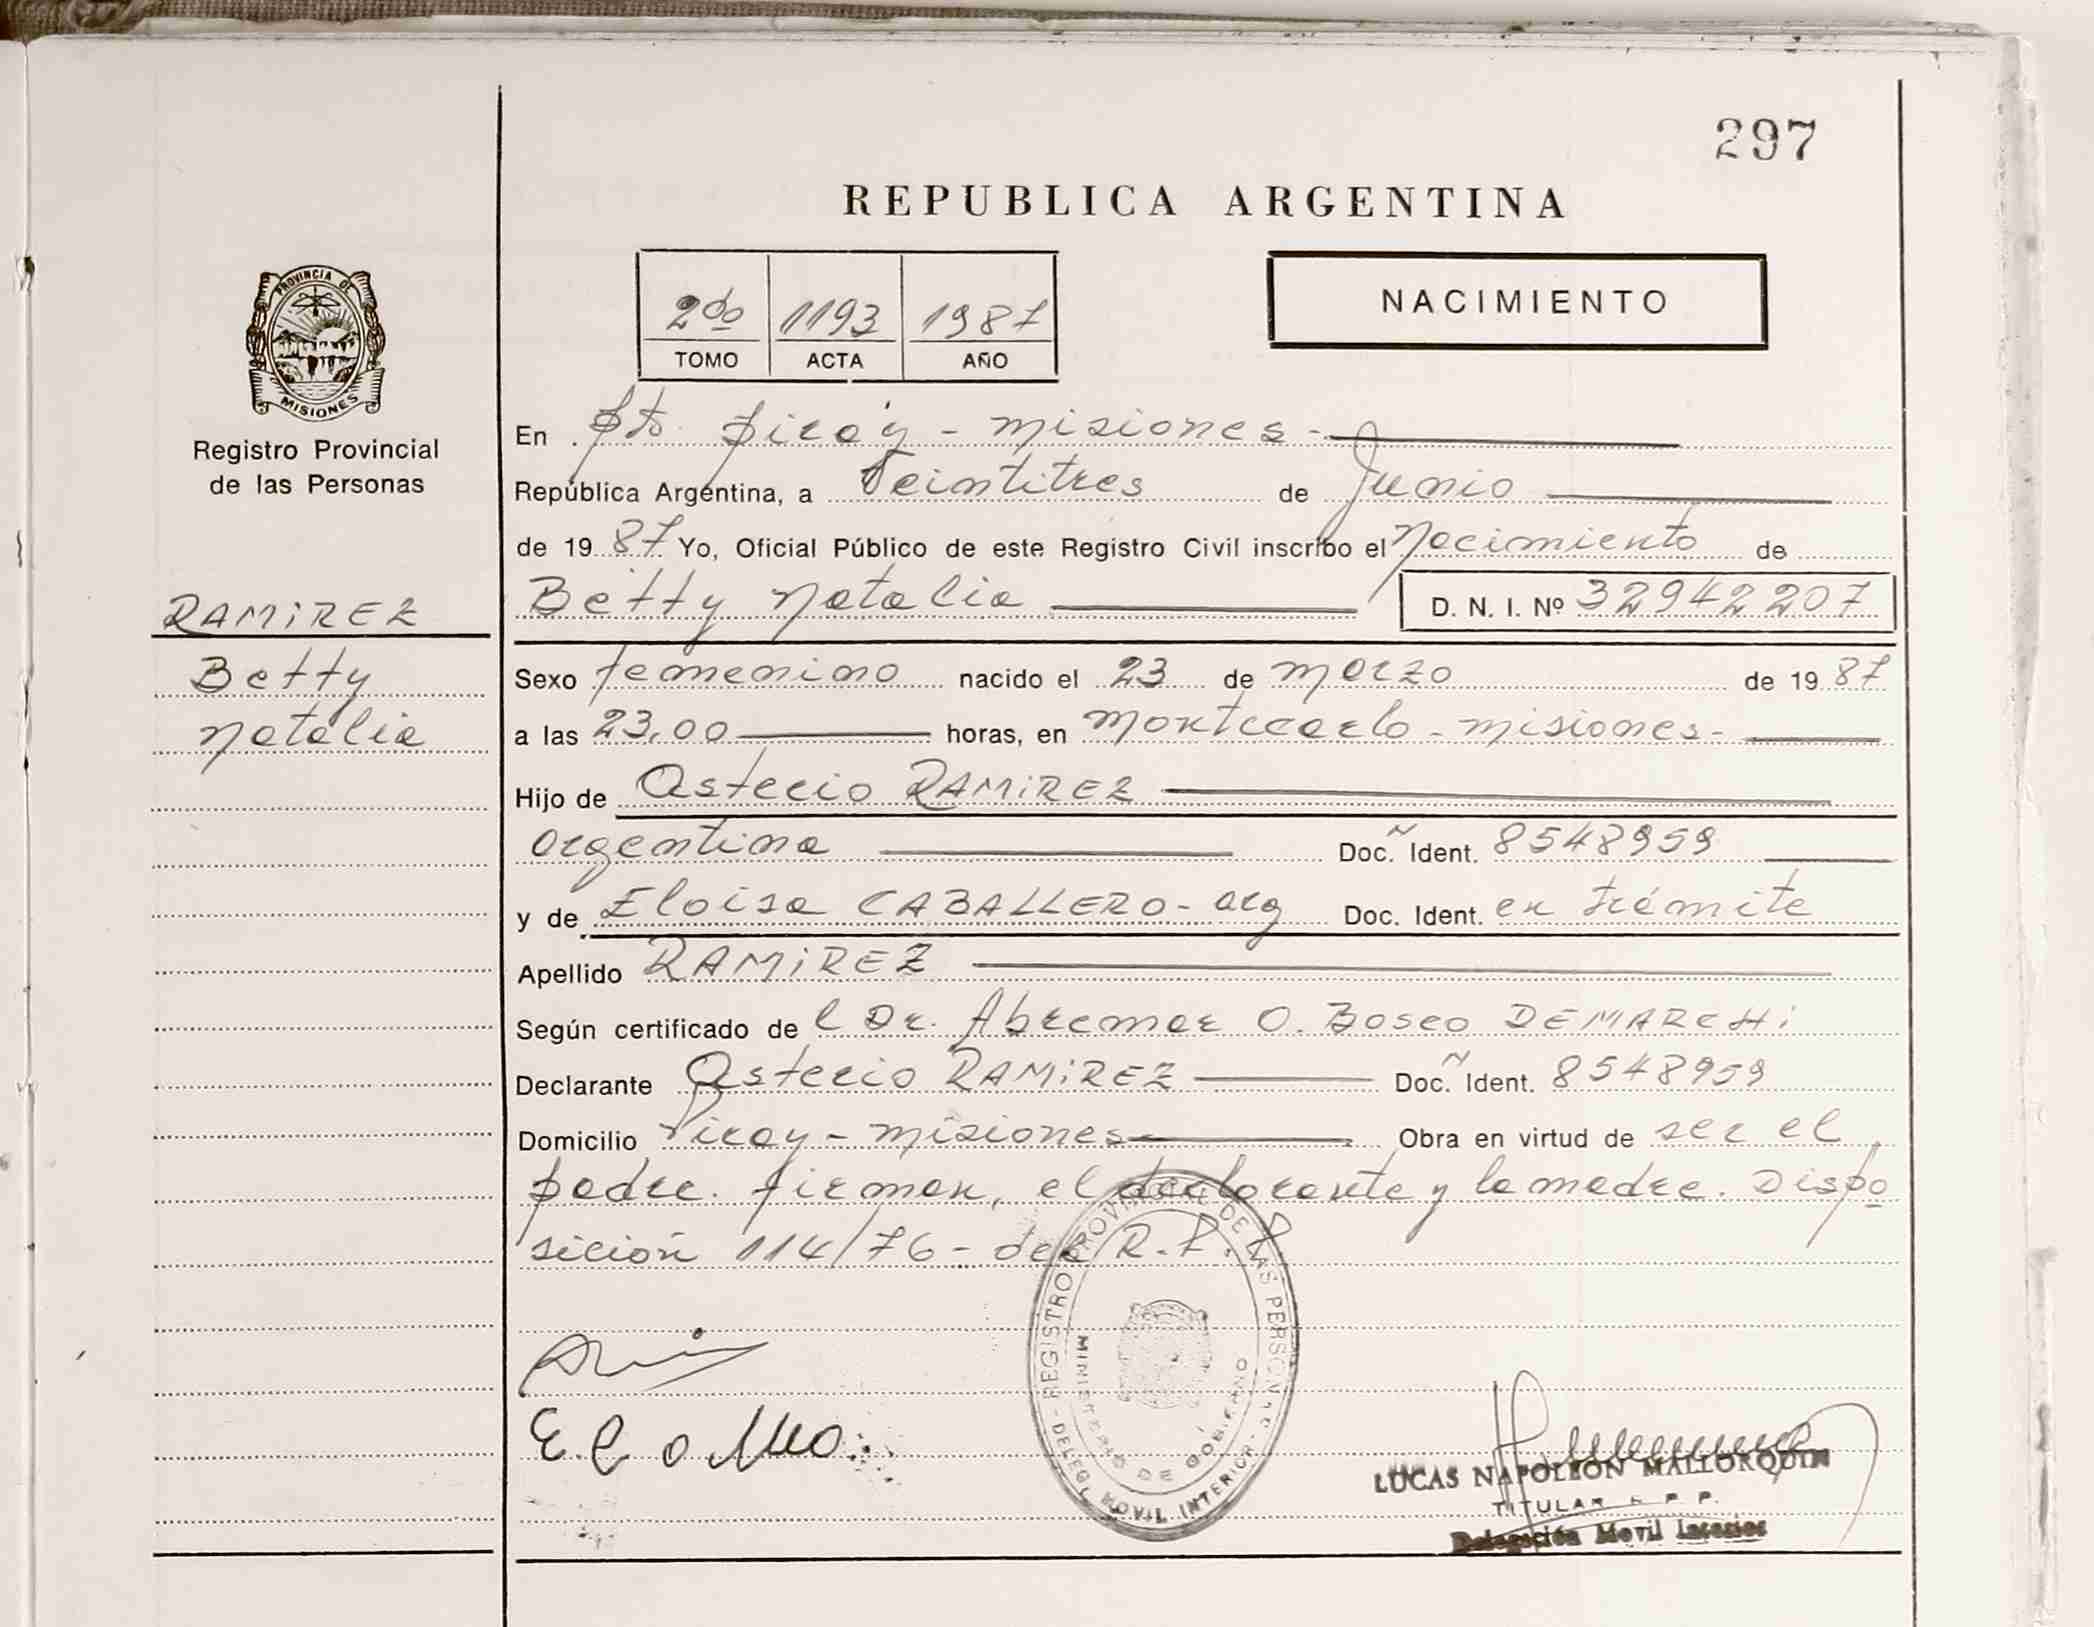 297
REPUBLICA ARGENTINA
2do 1193 1987
TOMO ACTA AÑO
NACIMIENTO
PROVINCIA DE
MISIONES
Registro Provincial
de las Personas
RAMIREZ
Betty
Natalia
En Pto. Piray - Misiones -
República Argentina, a Veintitres de Junio
de 1987 Yo, Oficial Público de este Registro Civil inscribo el Nacimiento de
Betty Natalia D. N. I. Nº 32942207
Sexo femenino nacido el 23 de Marzo de 1987
a las 23,00 horas, en Montecarlo - Misiones -
Hijo de Asterio RAMIREZ
argentina Doc. Ident. 8548959
y de Eloisa CABALLERO - arg Doc. Ident. en trámite
Apellido RAMIREZ
Según certificado de l Dr. Abremar O. Bosco DEMARCHI
Declarante Asterio RAMIREZ Doc. Ident. 8548959
Domicilio Piray - Misiones Obra en virtud de ser el
padre. firman, el declarante y la madre. Dispo
sición 114/76 - del R.P.P
REGISTRO PROVINCIAL DE LAS PERSONAS
MINISTERIO DE GOBIERNO
DELEG. MOVIL INTERIOR
LUCAS NAPOLEON MALLORQUIN
TITULAR R. P. P.
Delegación Movil Interior